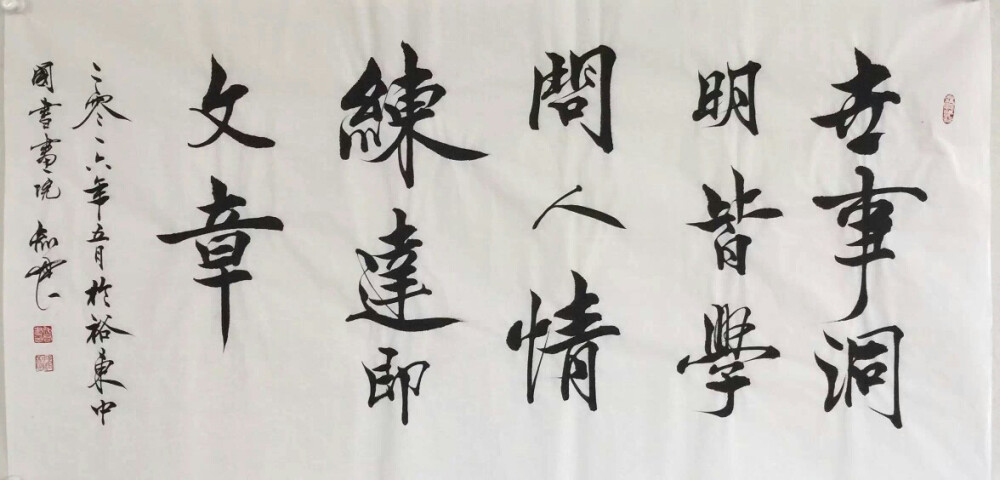 世事洞
明皆學
問人情
練達即
文章
二零一六年五月於裕東中
國書畫院